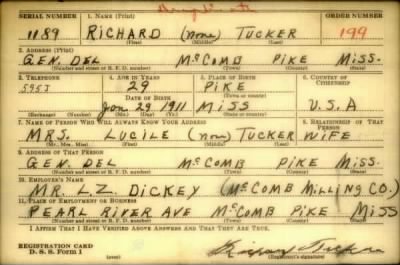 Duplicate
SERIAL NUMBER 1. NAME (Print) ORDER NUMBER
1189 RICHARD (none) TUCKER 199
(First) (Middle) (Last)
2. ADDRESS (Print)
GEN. DEL McCOMB PIKE MISS.
(Number and street or R. F. D. number) (Town) (County) (State)
3. TELEPHONE 4. AGE IN YEARS 5. PLACE OF BIRTH 6. COUNTRY OF CITIZENSHIP
595J 29 PIKE
DATE OF BIRTH (Town or county)
Jan 29 1911 MISS U.S.A
(Exchange) (Number) (Mo.) (Day) (Yr.) (State or country)
7. NAME OF PERSON WHO WILL ALWAYS KNOW YOUR ADDRESS 8. RELATIONSHIP OF THAT PERSON
MRS. LUCILE (none) TUCKER WIFE
(Mr., Mrs., Miss) (First) (Middle) (Last)
9. ADDRESS OF THAT PERSON
GEN. DEL McCOMB PIKE MISS.
(Number and street or R. F. D. number) (Town) (County) (State)
10. EMPLOYER'S NAME
MR. L.Z. DICKEY (McCOMB MILLING CO.)
11. PLACE OF EMPLOYMENT OR BUSINESS
PEARL RIVER AVE McCOMB PIKE MISS
(Number and street or R. F. D. number) (Town) (County) (State)
I AFFIRM THAT I HAVE VERIFIED ABOVE ANSWERS AND THAT THEY ARE TRUE.
REGISTRATION CARD
D. S. S. Form 1 Richard Tucker
(Registrant's signature)